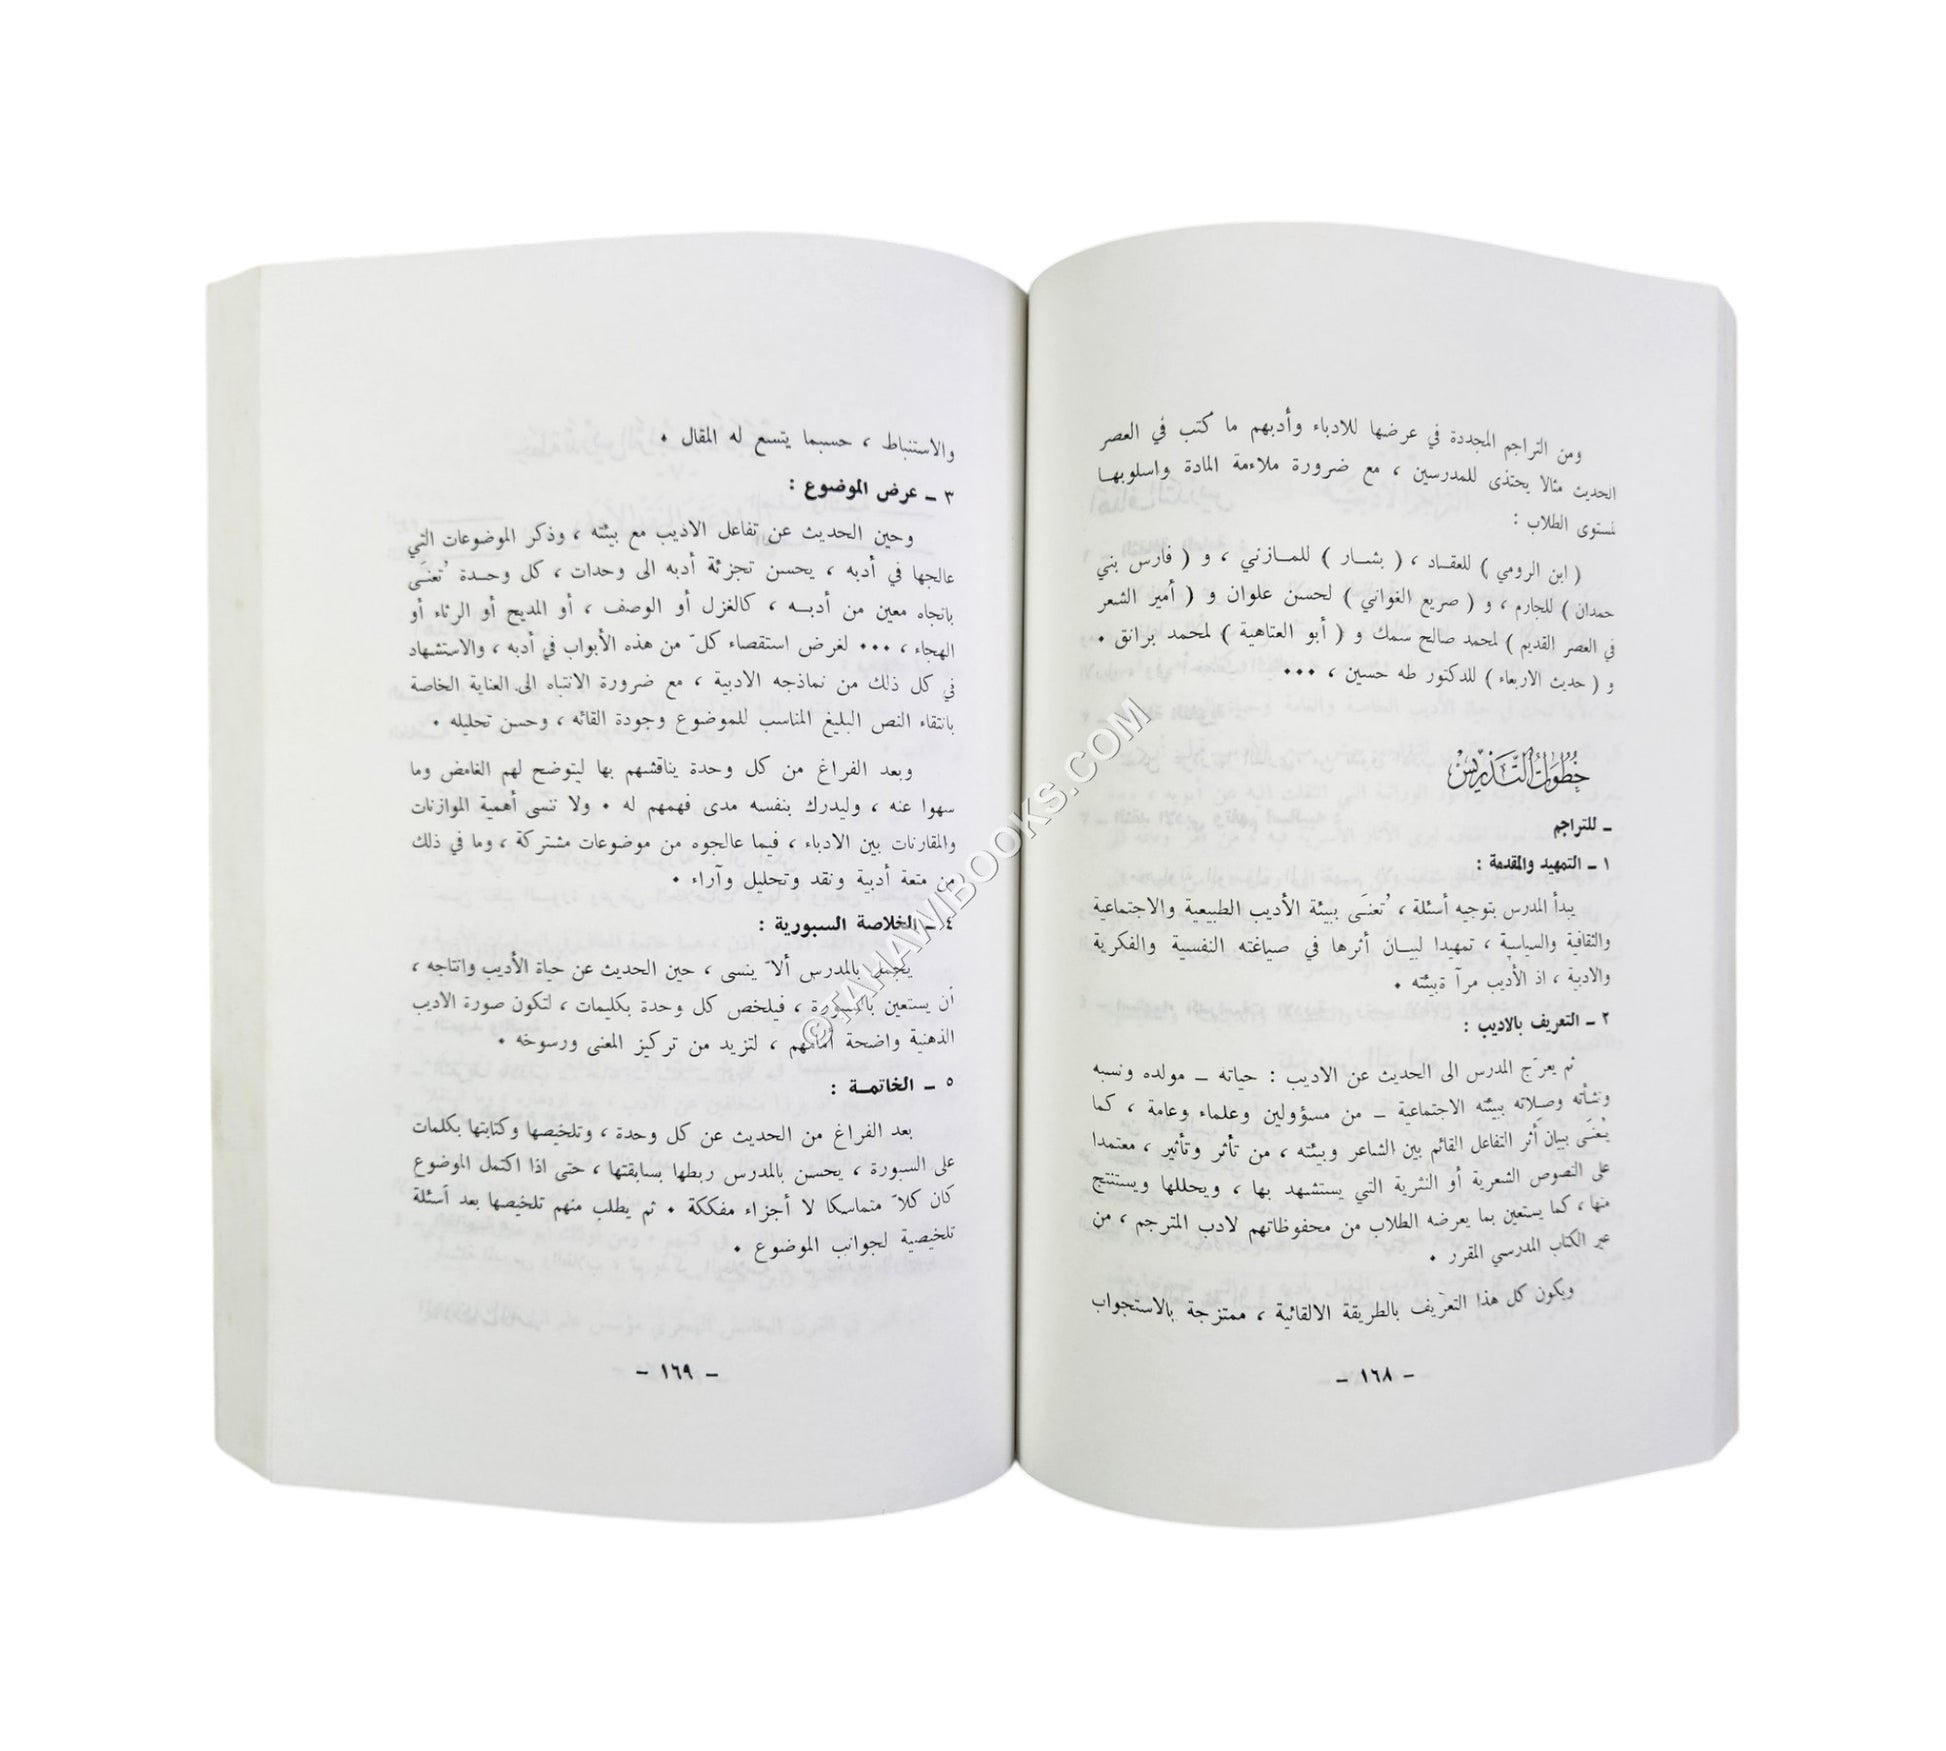 ومن التراجم المجددة في عرضها للادباء وأدبهم ما كتب في العصر
الحديث مثالا يحتذى للمدرسين ، مع ضرورة ملاءمة المادة واسلوبها
لمستوى الطلاب :
( ابن الرومي ) للعقاد ، ( بشار ) للمازني ، و ( فارس بني
حمدان ) للجارم ، و ( صريع الغواني ) لحسن علوان و ( أمير الشعر
في العصر القديم ) لمحمد صالح سمك و ( أبو العتاهية ) لمحمد برانق .
و ( حديث الاربعاء ) للدكتور طه حسين ، ...
خطوات التدريس
ـ للتراجم
١ ـ التمهيد والمقدمة :
يبدأ المدرس بتوجيه أسئلة ، تُعنَى ببيئة الأديب الطبيعية والاجتماعية
والثقافية والسياسية ، تمهيدا لبيان أثرها في صياغته النفسية والفكرية
والادبية ، اذ الأديب مرآ ةبيئته .
٢ ـ التعريف بالاديب :
ثم يعرّج المدرس الى الحديث عن الاديب : حياته ـ مولده ونسبه
ونشأته وصلاته ببيئته الاجتماعية ـ من مسؤولين وعلماء وعامة ، كما
يُعنَى ببيان أثر التفاعل القائم بين الشاعر وبيئته ، من تأثر وتأثير ، معتمدا
على النصوص الشعرية أو النثرية التي يستشهد بها ، ويحللها ويستنتج
منها ، كما يستعين بما يعرضه الطلاب من محفوظاتهم لادب المترجم ، من
عبر الكتاب المدرسي المقرر .
ويكون كل هذا التعريف بالطريقة الالقائية ، ممتزجة بالاستجواب
ـ ١٦٨ ـ
والاستنباط ، حسبما يتسع له المقال .
٣ ـ عرض الموضوع :
وحين الحديث عن تفاعل الاديب مع بيئته ، وذكر الموضوعات التي
عالجها في أدبه ، يحسن تجزئة أدبه الى وحدات ، كل وحدة تُعنَى
باتجاه معين من أدبه ، كالغزل أو الوصف ، أو المديح أو الرثاء أو
الهجاء ، ... لغرض استقصاء كلّ من هذه الأبواب في أدبه ، والاستشهاد
في كل ذلك من نماذجه الادبية ، مع ضرورة الانتباه الى العناية الخاصة
بانتقاء النص البليغ المناسب للموضوع وجودة القائه ، وحسن تحليله .
وبعد الفراغ من كل وحدة يناقشهم بها ليتوضح لهم الغامض وما
سهوا عنه ، وليدرك بنفسه مدى فهمهم له . ولا ننسى أهمية الموازنات
والمقارنات بين الادباء ، فيما عالجوه من موضوعات مشتركة ، وما في ذلك
من متعة أدبية ونقد وتحليل وآراء .
٤ ـ الخلاصة السبورية :
يجمل بالمدرس ألاّ ينسى ، حين الحديث عن حياة الأديب وانتاجه ،
أن يستعين بالسبورة ، فيلخص كل وحدة بكليمات ، لتكون صورة الاديب
الذهنية واضحة أمامهم ، لتزيد من تركيز المعنى ورسوخه .
٥ ـ الخاتمة :
بعد الفراغ من الحديث عن كل وحدة ، وتلخيصها وكتابتها بكلمات
على السبورة ، يحسن بالمدرس ربطها بسابقتها ، حتى اذا اكتمل الموضوع
كان كلاّ متماسكا لا أجزاء مفككة . ثم يطلب منهم تلخيصها بعد أسئلة
تلخيصية لجوانب الموضوع .
ـ ١٦٩ ـ
©TAHAWIBOOKS.COM